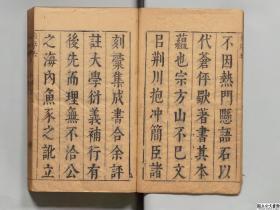 不因熱門懸語石以
代蒼伻歇著書其本
蘊也宗方山不巳文
呂荆川抱冲簡臣諸
刻彙集成書合余評
註大學衍義補行有
後先而理無不洽公
之海內魚豕之訛立